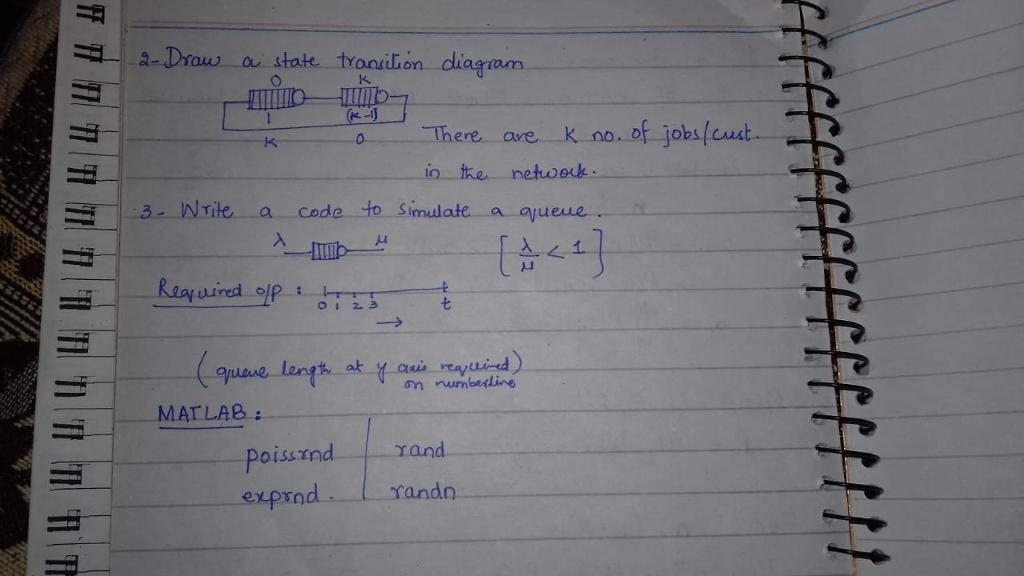 2- Draw a state transition diagram
0 K
1 (K-1)
K 0
There are K no. of jobs/cust.
in the network.
3- Write a code to simulate a queue.
λ μ [λ/μ < 1]
Required o/p :
0 1 2 3 t
t
(queue length at y axis required)
on numberline
MATLAB :
poissrnd | rand
exprnd. | randn